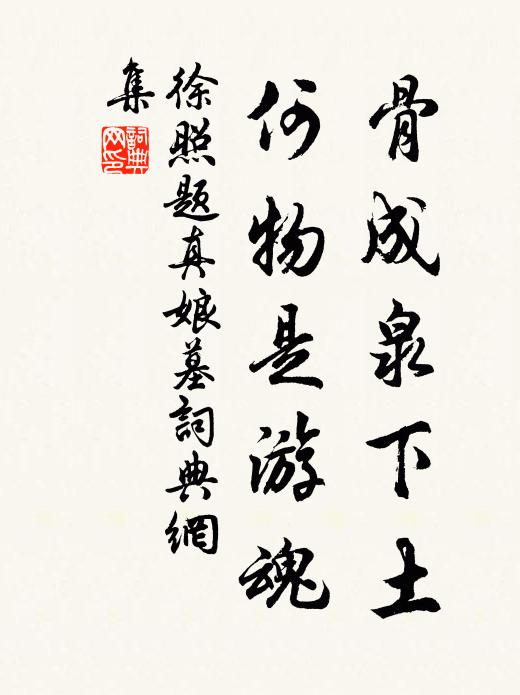 骨成泉下土
何物是游魂
徐照题真娘墓詞典網
集
詞典
网印